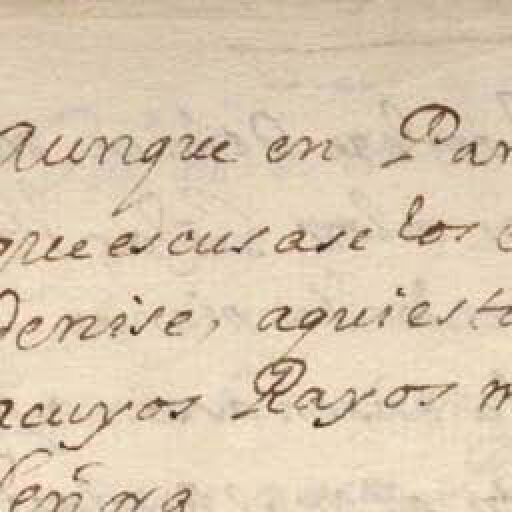 Aunque en Par
que escusase los
Denise, aquiest
acuyos Rayos m